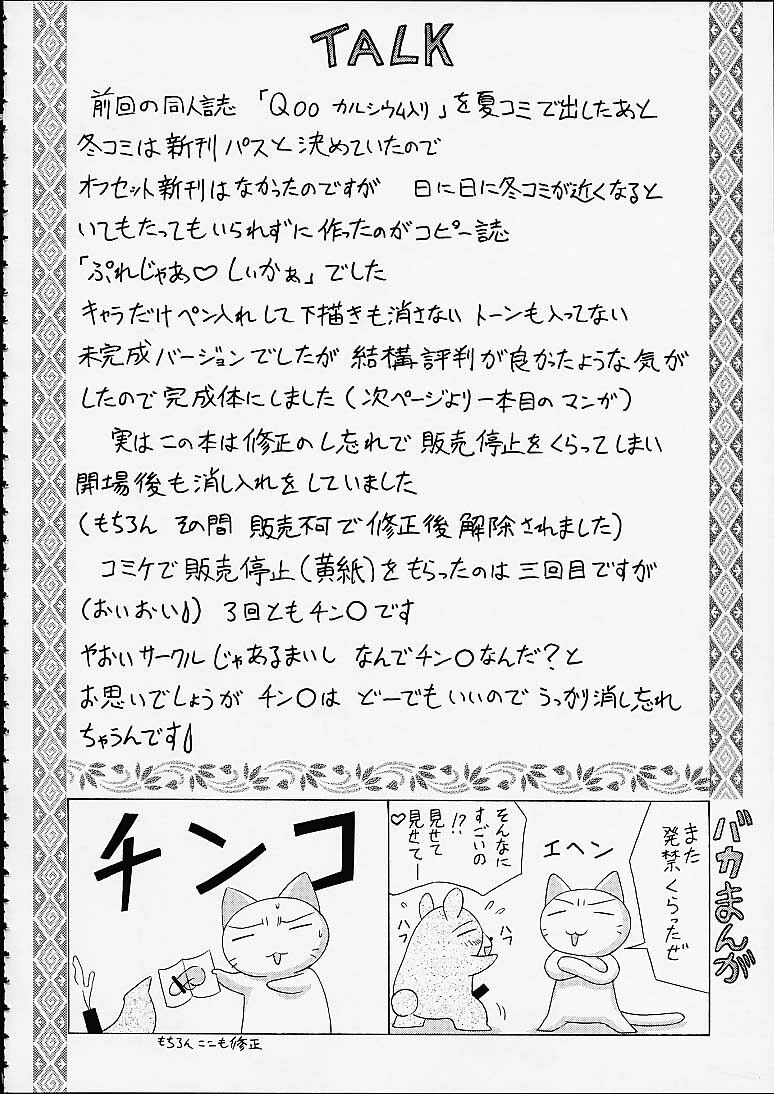 TALK
前回の同人誌 「Qoo カルシウム入り」を夏コミで出したあと
冬コミは新刊パスと決めていたので
オフセット新刊はなかったのですが 日に日に冬コミが近くなると
いてもたってもいられずに作ったのがコピー誌
「ぷれじゃあ♡しぃかぁ」でした
キャラだけペン入れして下描きも消さない トーンも入ってない
未完成バージョンでしたが 結構評判が良かったような気が
したので完成体にしました(次ページより一本目のマンガ)
実はこの本は修正のし忘れで 販売停止をくらってしまい
開場後も消し入れをしていました
(もちろん その間 販売不可で修正後解除されました)
コミケで販売停止(黄紙)をもらったのは三回目ですが
(おいおい) 3回ともチン〇です
やおいサークルじゃあるまいし なんでチン〇なんだ?と
お思いでしょうが チン〇は どーでもいいので うっかり消し忘れ
ちゃうんです
バカまんが
また
発禁くらったぜ
エヘン
そんなに
すごいの
!?
見せて
見せてー
♡
ハフ
ハフ
チンコ
もちろんここも修正